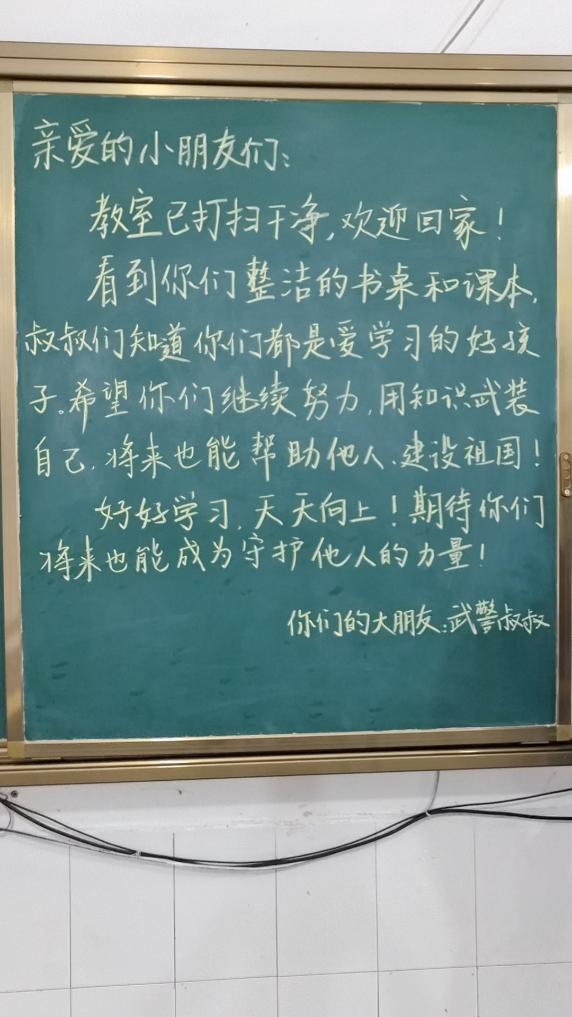 亲爱的小朋友们:
教室已打扫干净,欢迎回家!
看到你们整洁的书桌和课本,
叔叔们知道你们都是爱学习的好孩
子。希望你们继续努力,用知识武装
自己,将来也能帮助他人、建设祖国!
好好学习,天天向上!期待你们
将来也能成为守护他人的力量!
你们的大朋友:武警叔叔